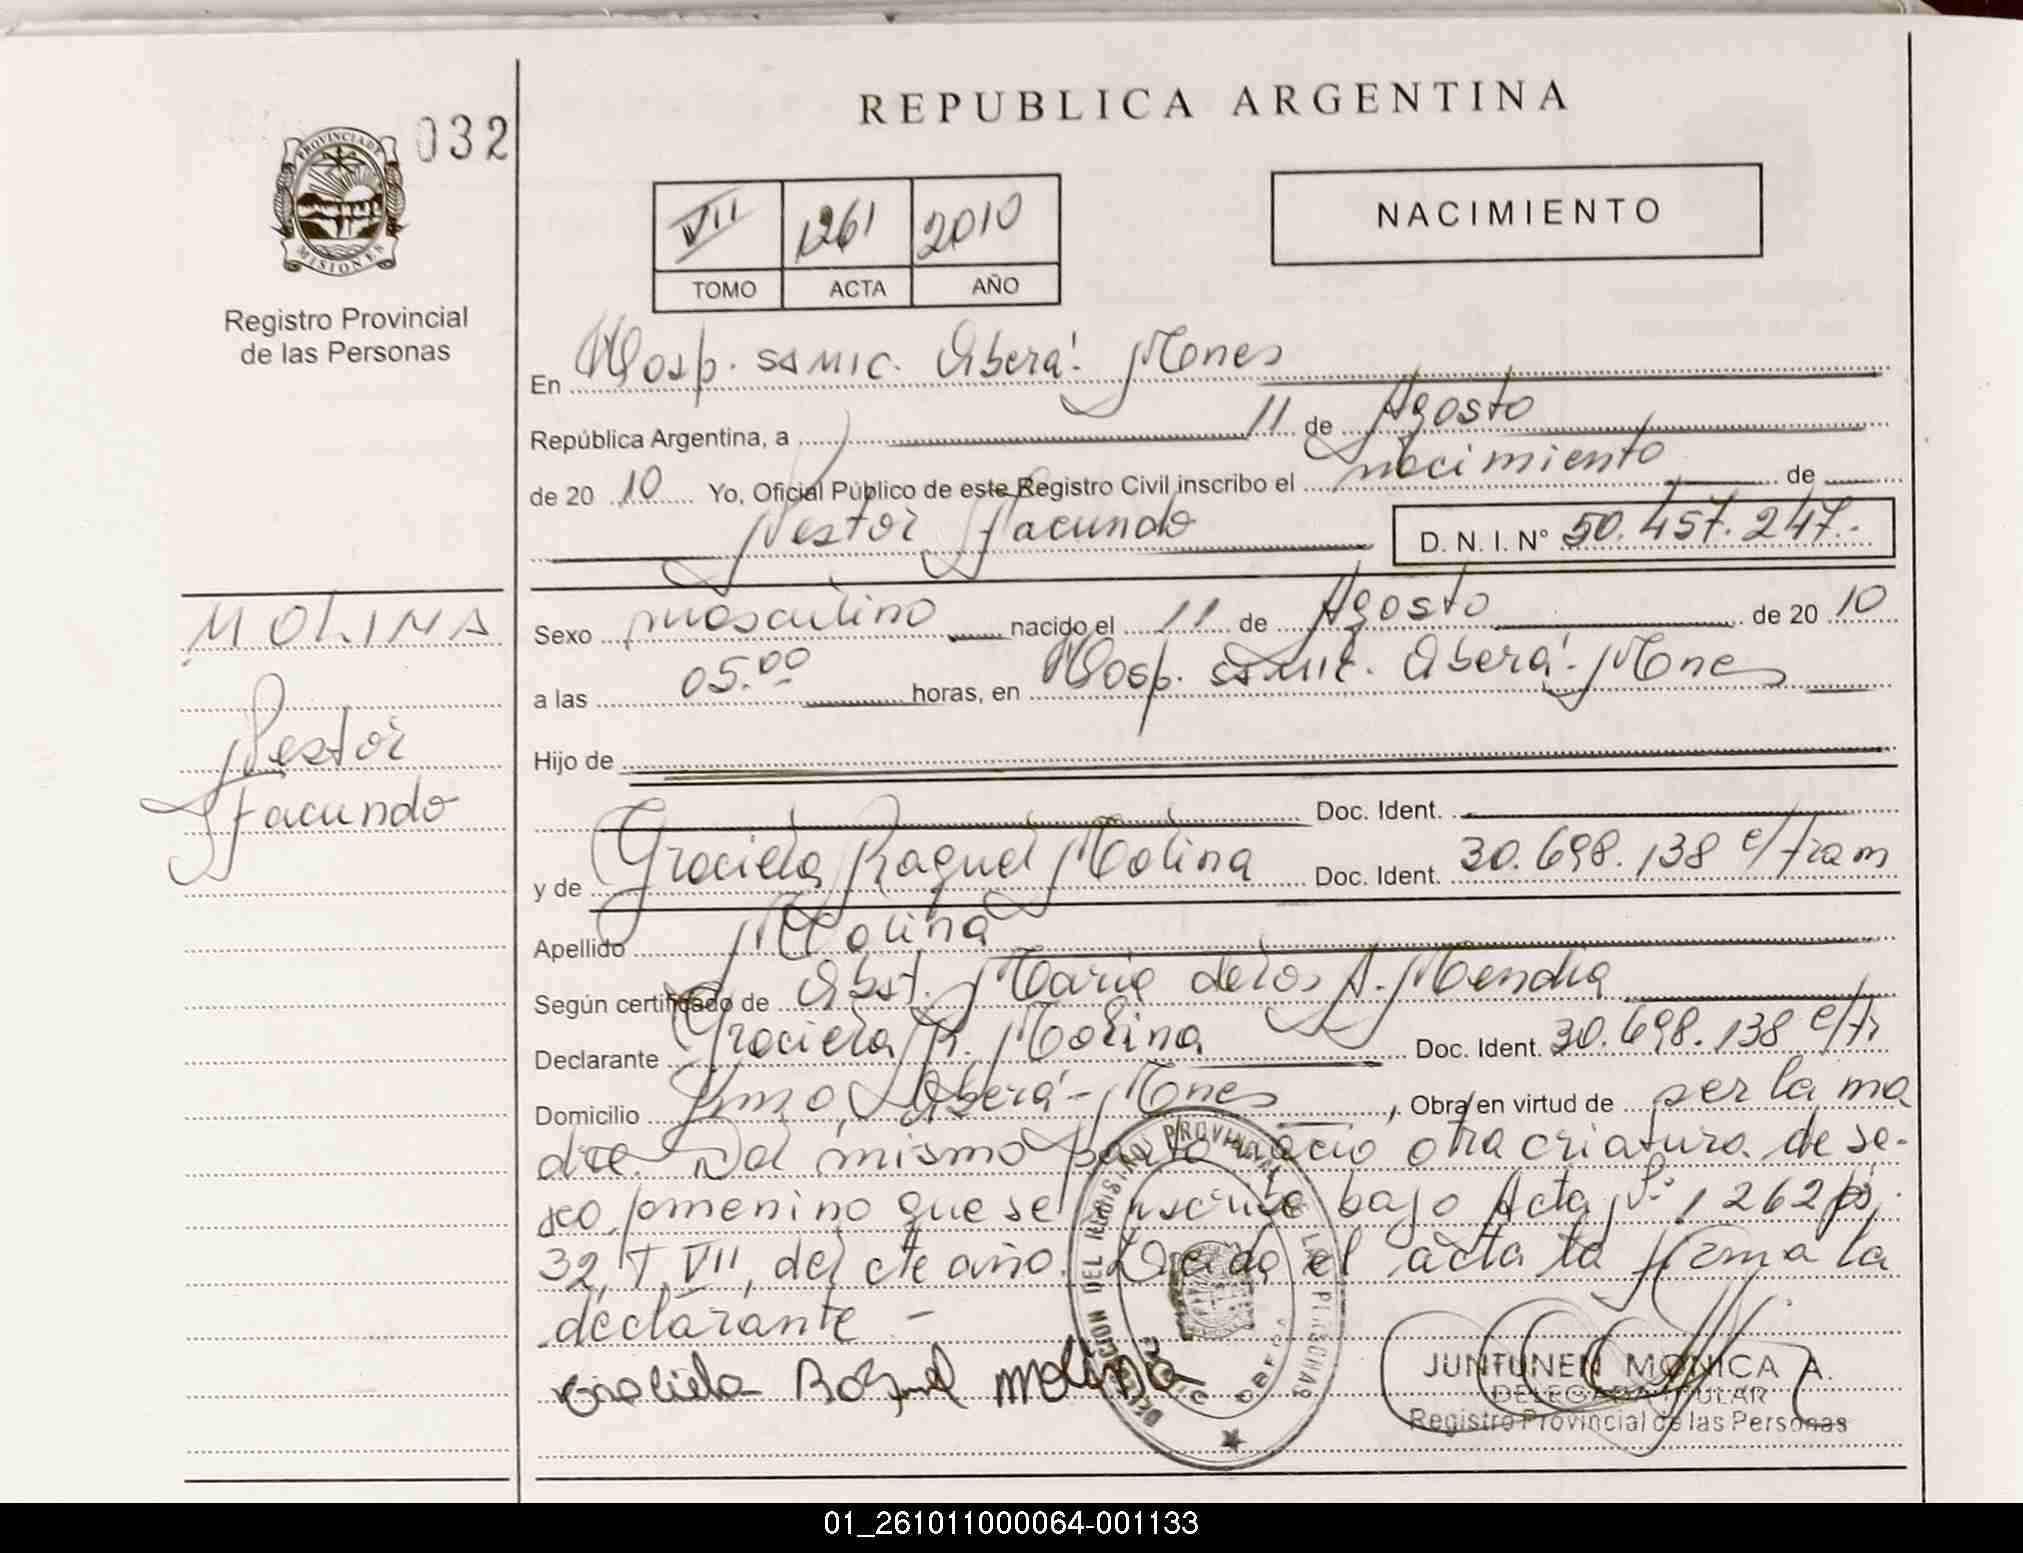 REPUBLICA ARGENTINA
032
PROVINCIA DE
MISIONES
Registro Provincial
de las Personas
VII 1261 2010
TOMO ACTA AÑO
NACIMIENTO
En Hosp. SAMIC. Oberá. Mones
República Argentina, a 11 de Agosto
de 20 10 Yo, Oficial Público de este Registro Civil inscribo el nacimiento de
Nestor Facundo D. N. I. N° 50.457.247.-
MOLINA
Nestor
Facundo
Sexo masculino nacido el 11 de Agosto de 20 10
a las 05.00 horas, en Hosp. SAMIC. Oberá-Mones
Hijo de
Doc. Ident.
y de Graciela Raquel Molina Doc. Ident. 30.698.138 c/tram
Apellido Molina
Según certificado de Obst. Maria de los A. Mendia
Declarante Graciela R. Molina Doc. Ident. 30.698.138 c/tr
Domicilio Oberá-Mones, Obra en virtud de ser la ma
dre. Del mismo parto nacio otra criatura de se-
xo femenino que se inscribe bajo Acta N° 1262
32, T VII, del cte año. Leida el acta la firma la
declarante.-
Graciela Raquel Molina
JUNTUNEN MONICA A.
DELEGADA TITULAR
Registro Provincial de las Personas
01_261011000064-001133